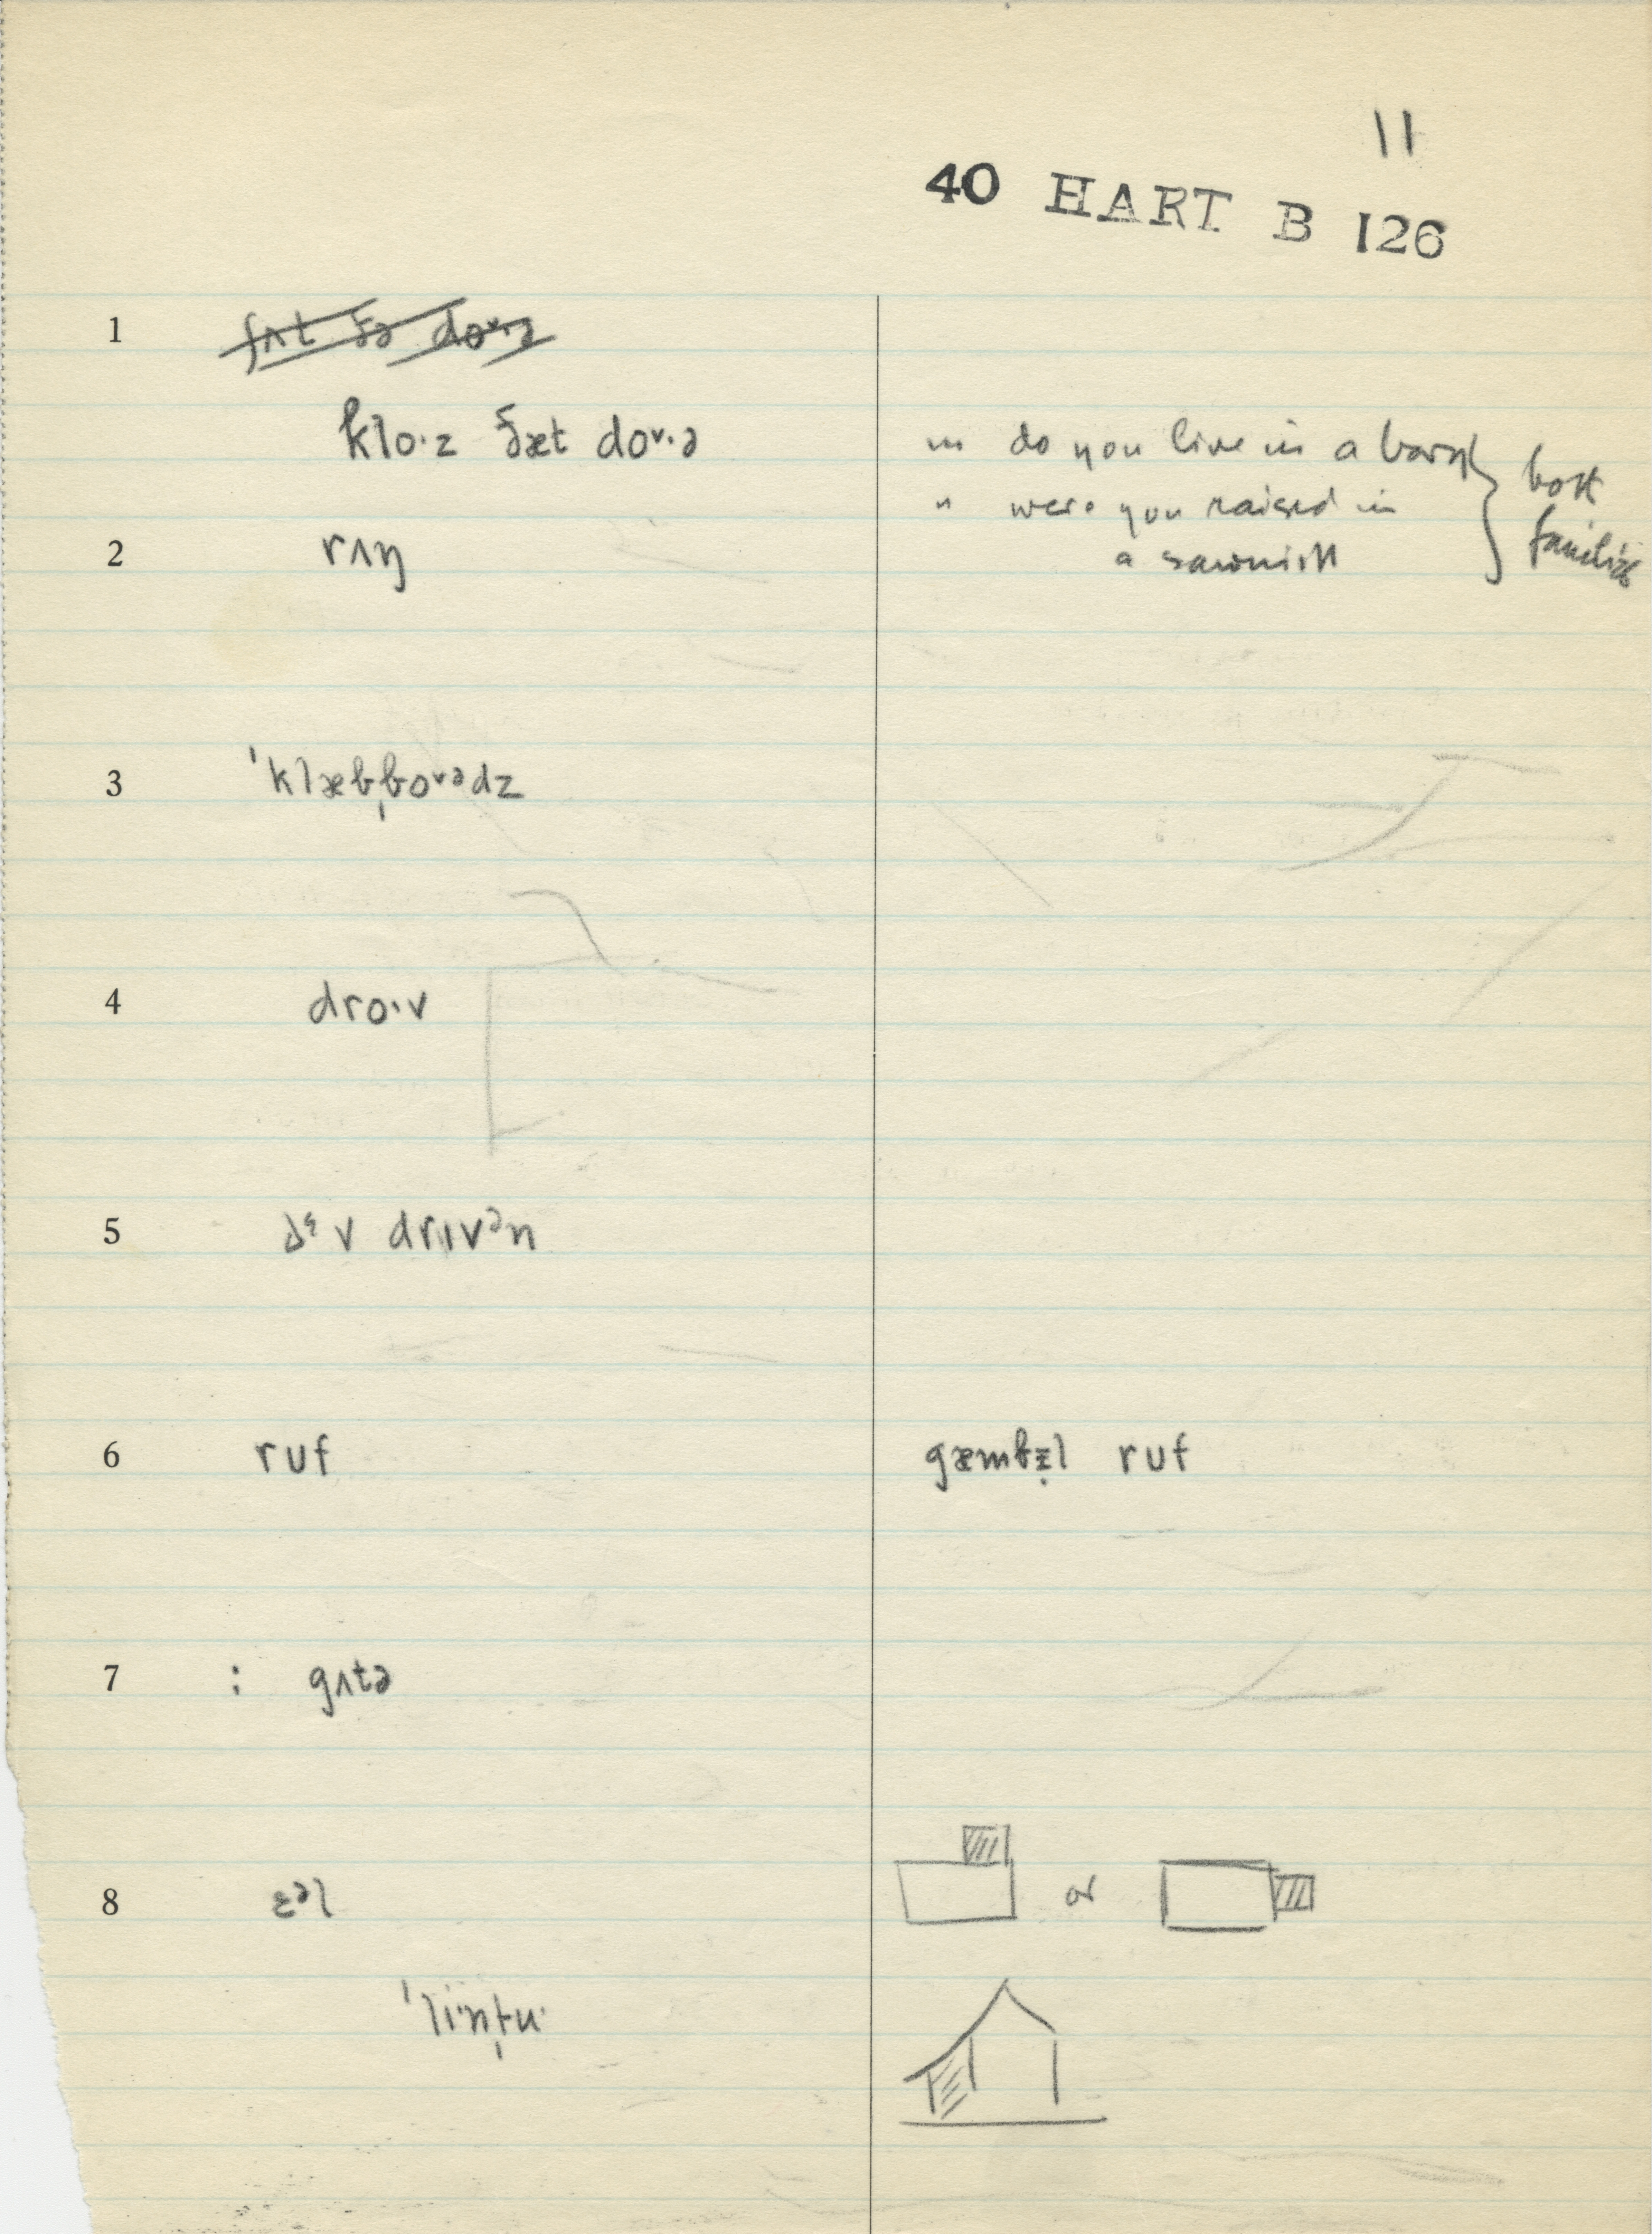 11
40 HART B 126
1 ʃʌt ðə doᵛ·ə
klo·z ðæt doᵛ·ə
" do you live in a barn } both families
" were you raised in
a sawmill
2 rʌŋ
3 ˈklæbˌboᵛᵊdz
4 dro·v
5 v drɪvᵊn
6 ruf gæmbᵻl ruf
7 : gʌtə
8 ɛᵊl or
ˈli·nˌtu·